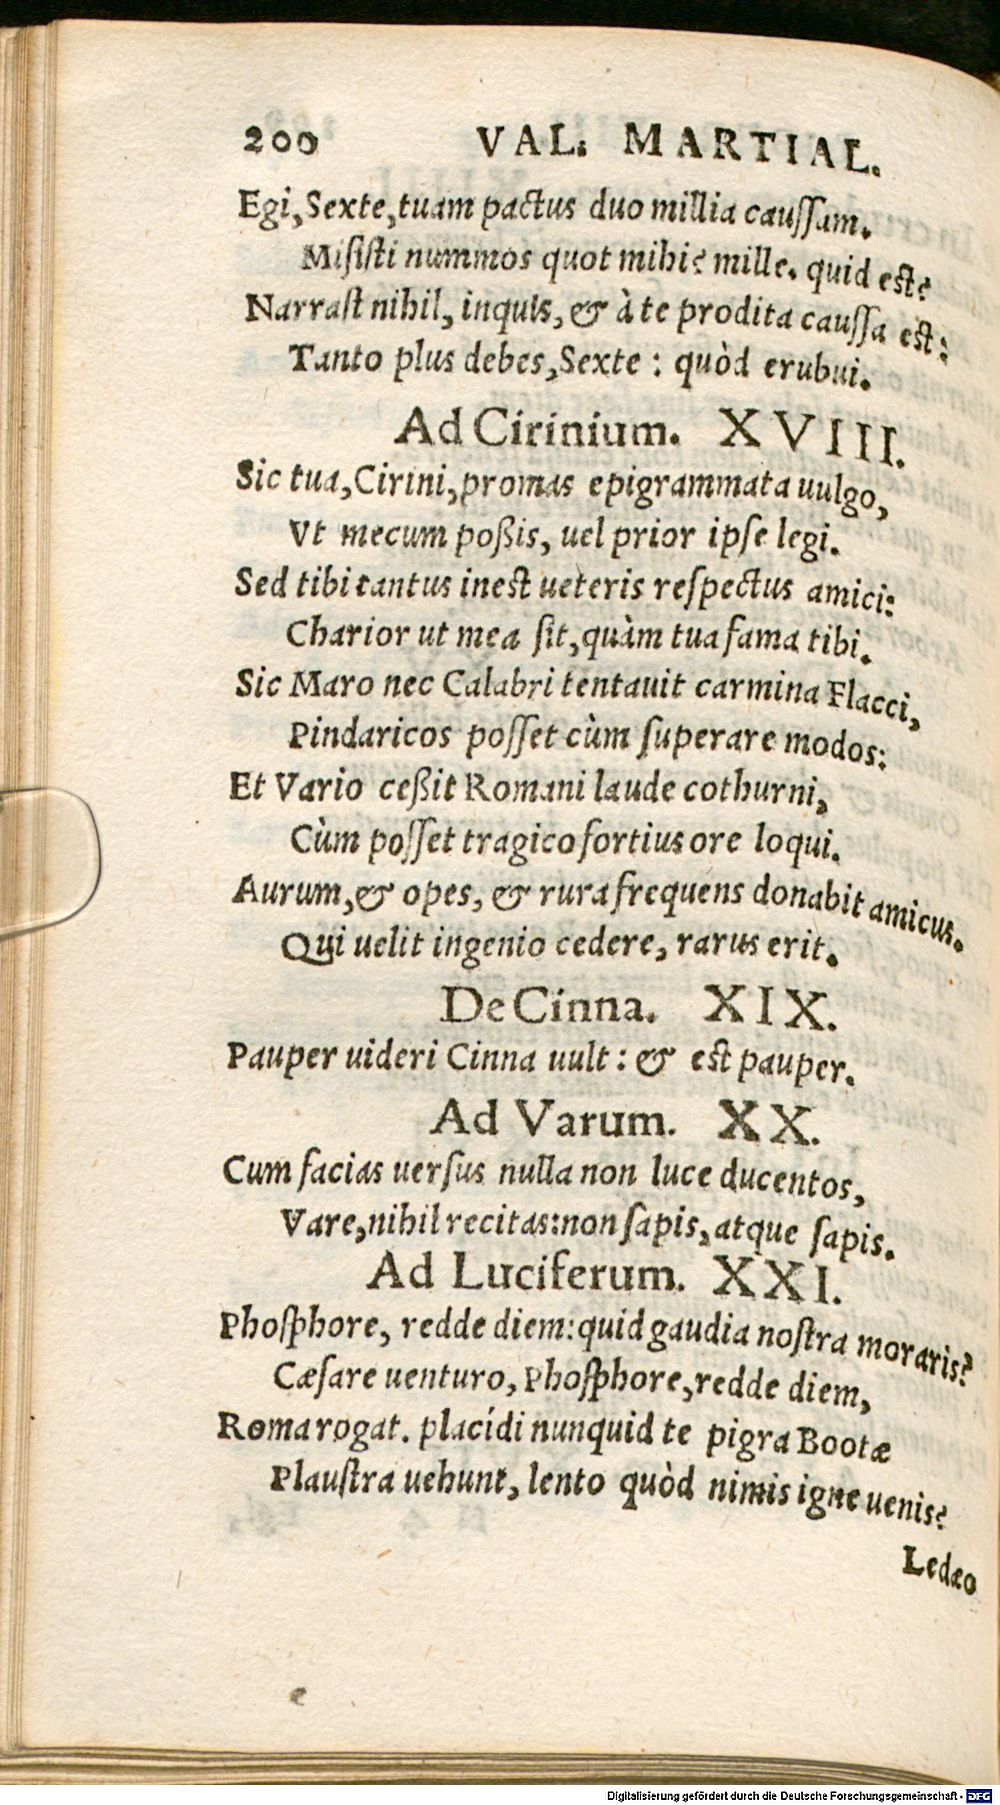 200 VAL. MARTIAL.
Egi, Sexte, tuam pactus duo millia cauſſam.
Misiſti nummos quot mihi? mille. quid eſt?
Narraſt nihil, inquis, & à te prodita cauſſa eſt:
Tanto plus debes, Sexte: quòd erubui.
Ad Cirinium. XVIII.
Sic tua, Cirini, promas epigrammata uulgo,
Vt mecum poßis, uel prior ipſe legi.
Sed tibi tantus ineſt ueteris reſpectus amici:
Charior ut mea ſit, quàm tua fama tibi.
Sic Maro nec Calabri tentauit carmina Flacci,
Pindaricos poſſet cùm ſuperare modos:
Et Vario ceßit Romani laude cothurni,
Cùm poſſet tragico fortius ore loqui.
Aurum, & opes, & rura frequens donabit amicus.
Qui uelit ingenio cedere, rarus erit.
De Cinna. XIX.
Pauper uideri Cinna uult: & eſt pauper.
Ad Varum. XX.
Cum facias uerſus nulla non luce ducentos,
Vare, nihil recitas: non ſapis, atque ſapis.
Ad Luciferum. XXI.
Phoſphore, redde diem: quid gaudia noſtra moraris?
Cæſare uenturo, Phoſphore, redde diem,
Roma rogat. placidi nunquid te pigra Bootæ
Plauſtra uehunt, lento quòd nimis igne uenis?
Ledæo
Digitalisierung gefördert durch die Deutsche Forschungsgemeinschaft - DFG